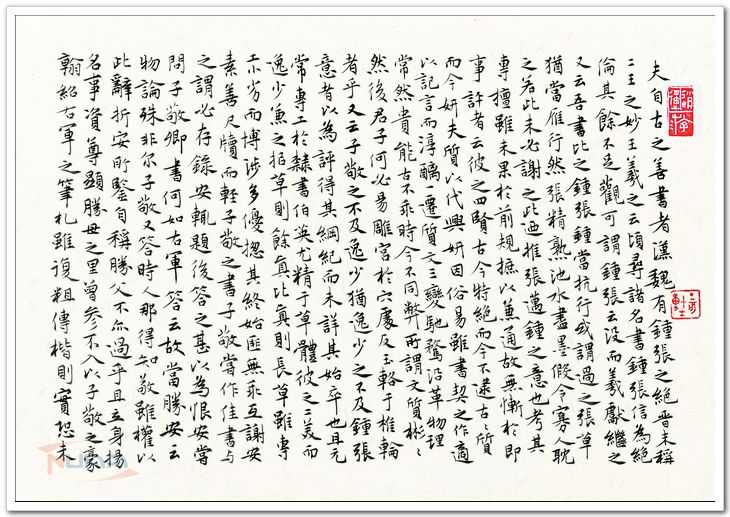 夫自古之善書者漢魏有鍾張之絕晉末稱
二王之妙王羲之云頃尋諸名書鍾張信為絕
倫其餘不足觀可謂鍾張云沒而羲獻繼之
又云吾書比之鍾張鍾當抗行或謂過之張草
猶當雁行然張精熟池水盡墨假令寡人耽
之若此未必謝之此乃推張邁鍾之意也考其
專擅雖未果於前規摭以兼通故無慚於即
事評者云彼之四賢古今特絕而今不逮古〻質
而今妍夫質以代興妍因俗易雖書契之作適
以記言而淳醨一遷質文三變馳騖沿革物理
常然貴能古不乖時今不同弊所謂文質彬〻
然後君子何必易雕宮於穴處反玉輅于椎輪
者乎又云子敬之不及逸少猶逸少之不及鍾張
意者以為評得其綱紀而未詳其始卒也且元
常專工於隸書伯英尤精于草體彼之二美而
逸少兼之擬草則餘真比真則長草雖專
工小劣而博涉多優揔其終始匪無乖互謝安
素善尺牘而輕子敬之書子敬嘗作佳書與
之謂必存錄安輒題後答之甚以為恨安嘗
問子敬卿書何如右軍答云故當勝安云
物論殊非尔子敬又答時人那得知敬雖權以
此辭折安所鑒自稱勝父不亦過乎且立身揚
名事資尊顯勝母之里曾參不入以子敬之豪
翰紹右軍之筆札雖復粗傳楷則實恐未